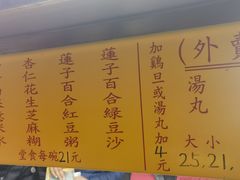 (外
湯丸
大 小
25.21.
加鷄旦或湯丸加4元
蓮子百合綠豆沙
蓮子百合紅豆粥
杏仁花生芝麻糊
堂食每碗21元